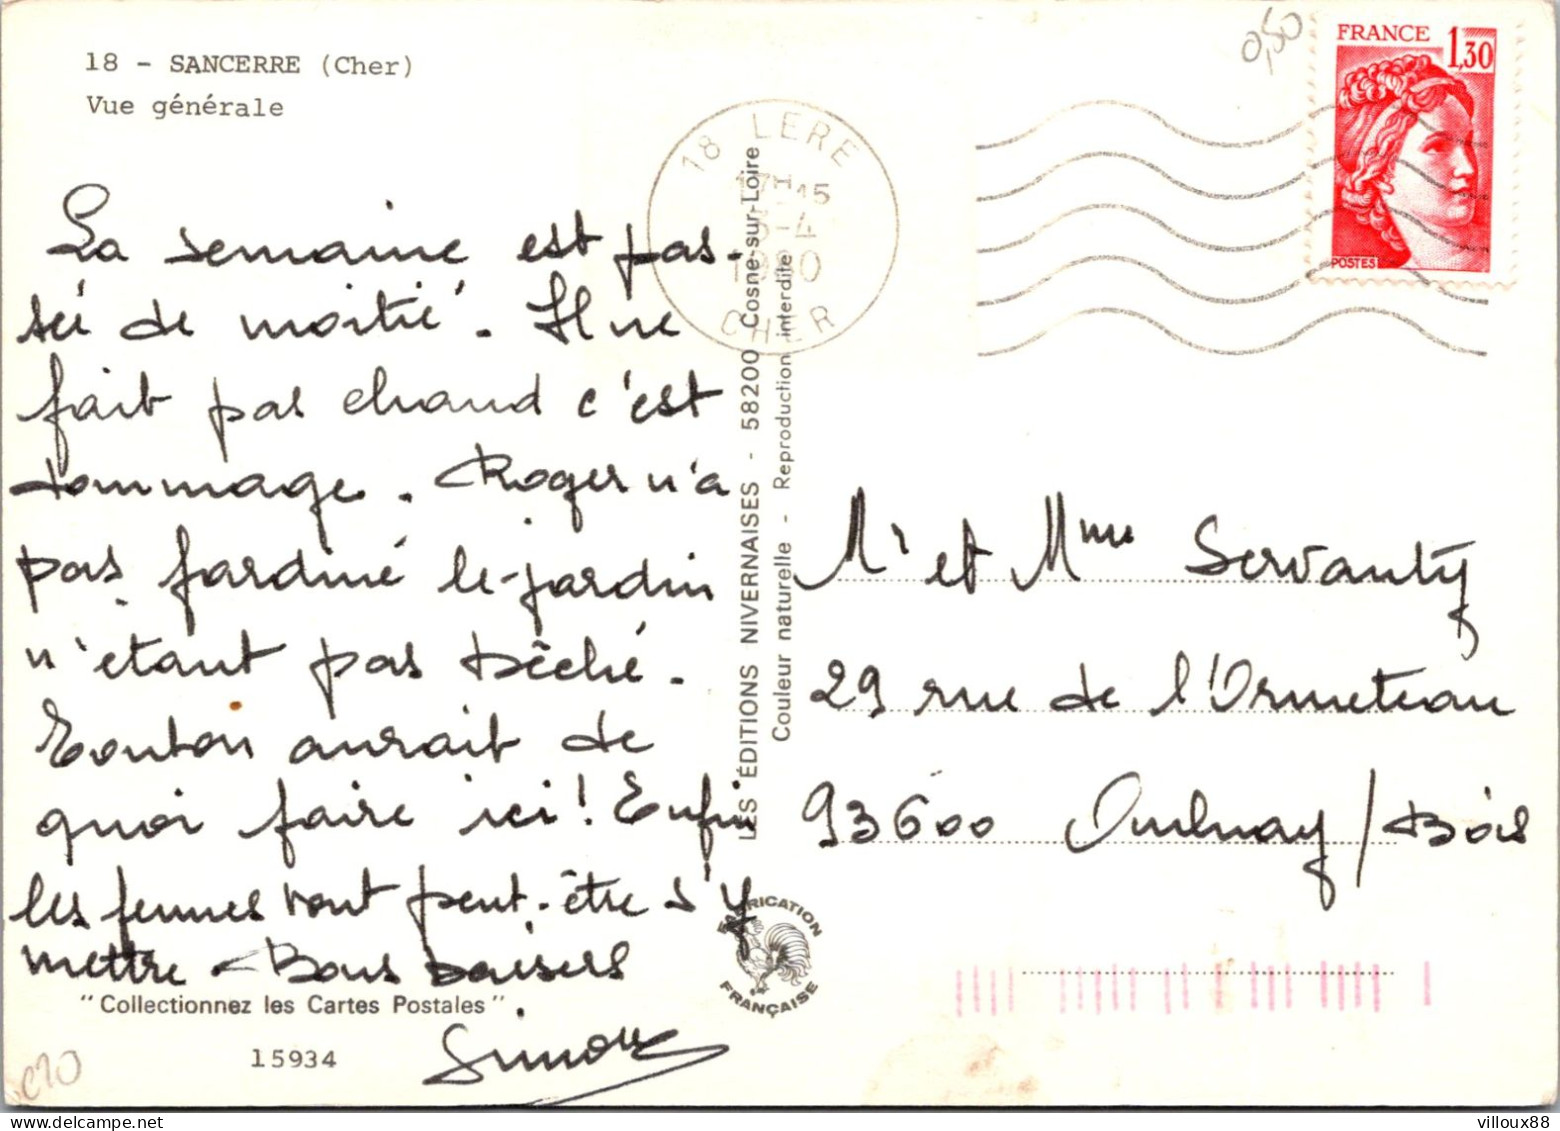 18 - SANCERRE (Cher)
Vue générale
La semaine est pas-
sée de moitié. Il ne
fait pas chaud c'est
dommage. Roger n'a
pas jardiné le jardin
n'étant pas bêché.
Tonton aurait de
quoi faire ici! Enfin
les femmes vont peut-être s'y
mettre - Bons baisers
"Collectionnez les Cartes Postales"
Simone
15934
18 LERE
17H15
-4
1980
CHER
LES ÉDITIONS NIVERNAISES - 58200 Cosne-sur-Loire
Couleur naturelle - Reproduction interdite
FABRICATION
FRANÇAISE
0,50
FRANCE 1,30
POSTES
Mr et Mme Servanty
29 rue de l'Ormeteau
93600 Aulnay/Bois
villoux88